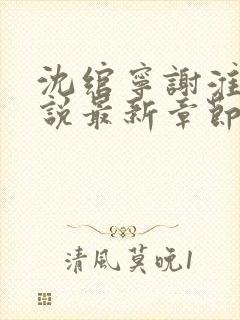 沈綰寧謝淮
說最新章節
清風莫晚1